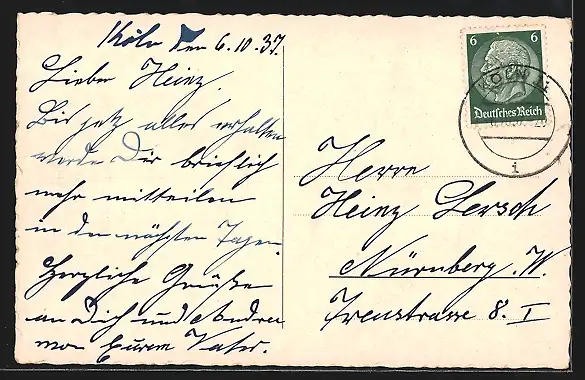 Köln den 6.10.37.
Lieber Heinz.
Bis jetz alles erhalten
werde Dir brieflich
mehr mitteilen
in den nächsten Tagen.
Herzliche Grüße
an Dich und Andre
von Eurem Vater.
6 6
Deutsches Reich
KÖLN
i
Herrn
Heinz Lersch
Nürnberg. W.
Freustrasse 8. I